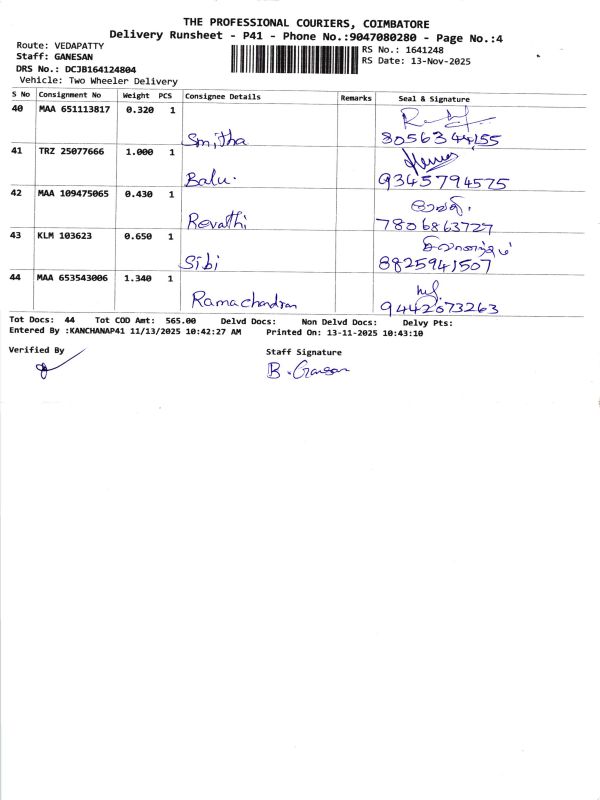 THE PROFESSIONAL COURIERS, COIMBATORE
Delivery Runsheet - P41 - Phone No.:9047080280 - Page No.:4
Route: VEDAPATTY
RS No.: 1641248
Staff: GANESAN
RS Date: 13-Nov-2025
DRS No.: DCJB164124804
Vehicle: Two Wheeler Delivery
S No Consignment No Weight PCS Consignee Details Remarks Seal & Signature
40 MAA 651113817 0.320 1
Smitha 8056344155
41 TRZ 25077666 1.000 1
Balu. 9345794575
42 MAA 109475065 0.430 1
Revathi 7806863727
43 KLM 103623 0.650 1
Sibi 8825941507
44 MAA 653543006 1.340 1
Ramachandran 9442673263
Tot Docs: 44 Tot COD Amt: 565.00 Delvd Docs: Non Delvd Docs: Delvy Pts:
Entered By :KANCHANAP41 11/13/2025 10:42:27 AM Printed On: 13-11-2025 10:43:10
Verified By Staff Signature
B. Ganesan